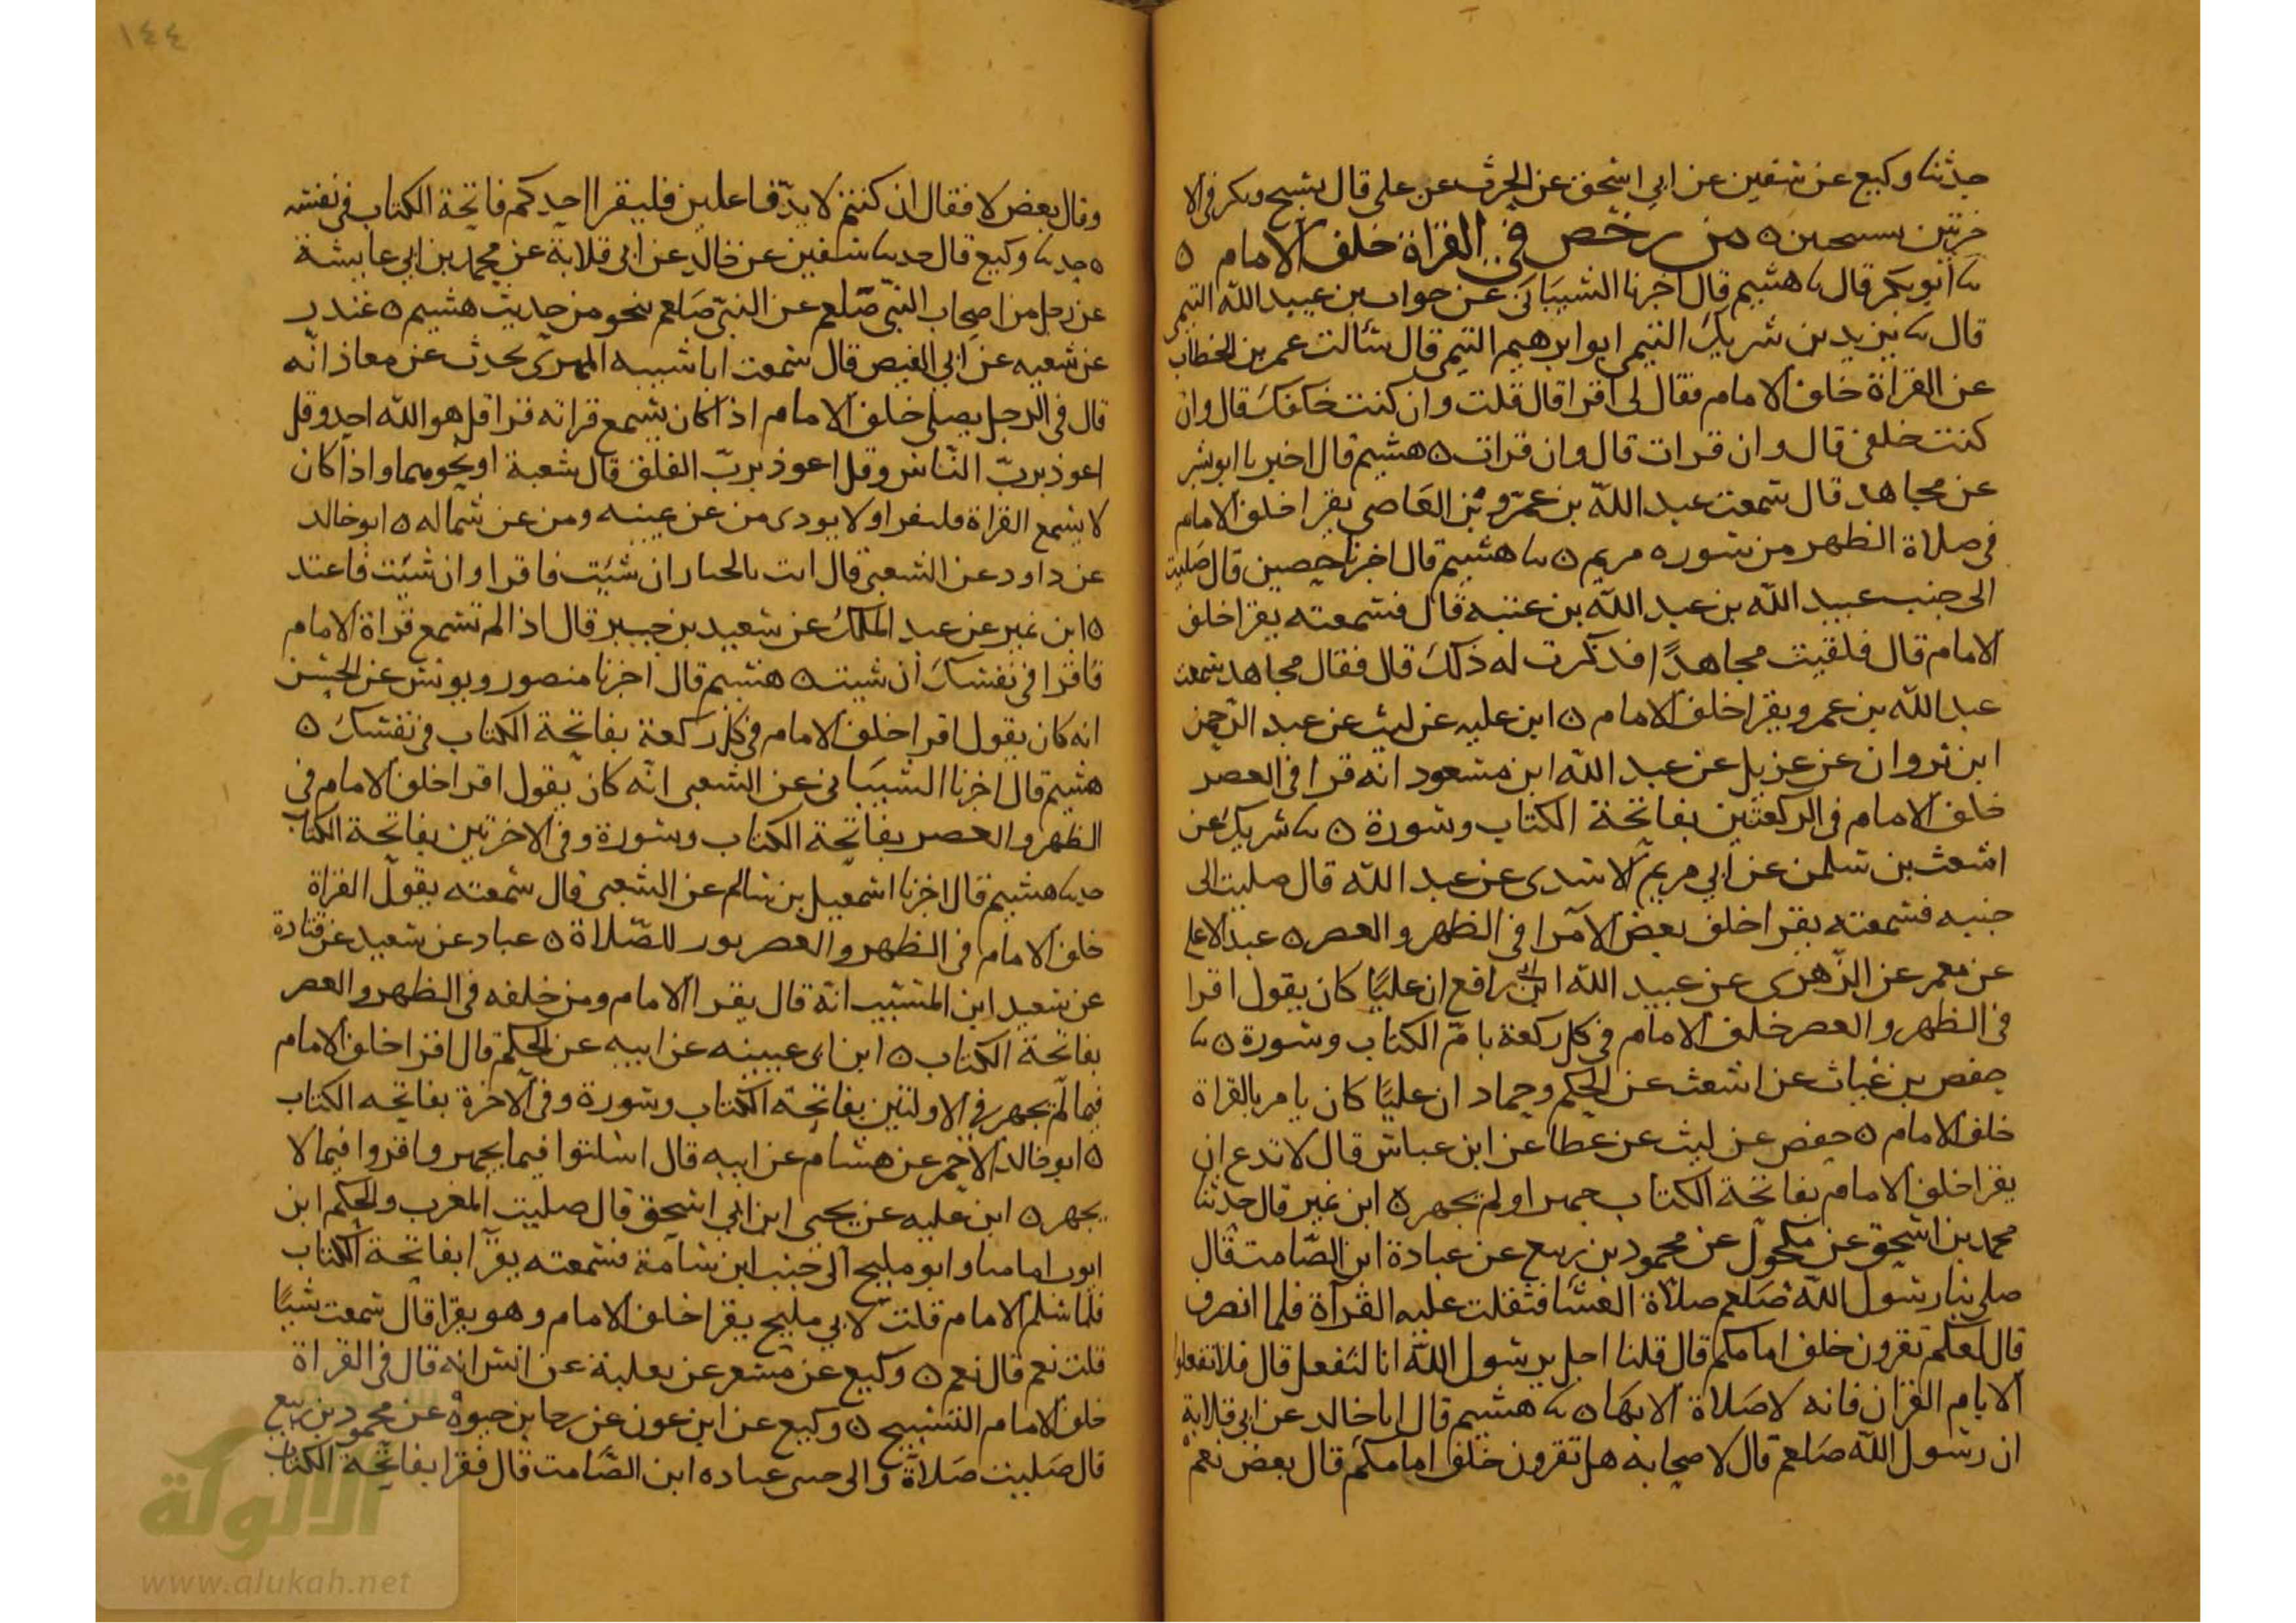 حدثنا وكيع عن سفين عن ابي اسحق عن الحرث عن على قال يسبح ويكبر فى الا
خرتين تسبيحتين ٥ من رخص فى القراة خلف الامام ٥
ثنا ابو بكر قال ثنا هشيم قال اخبرنا الشيبانى عن جواب بن عبيد الله التيمى
قال ثنا يزيد بن شريك التيمى ابو ابرهيم التيمى قال سالت عمر بن الخطاب
عن القراة خلف الامام فقال لى اقرا قال قلت وان كنت خلفك قال وان
كنت خلفى قال وان قرات قال وان قرات ٥ هشيم قال اخبرنا ابو بشر
عن مجاهد قال سمعت عبد الله بن عمرو بن العاصى يقرا خلف الامام
فى صلاة الظهر من سوره مريم ٥ ثنا هشيم قال اخبرنا حصين قال صليت
الى جنب عبيد الله بن عبد الله بن عتبة قال فسمعته يقرا خلف
الامام قال فلقيت مجاهدًا فذكرت له ذلك قال فقال مجاهد سمعت
عبد الله بن عمرو يقرا خلف الامام ٥ ابن عليه عن ليث عن عبد الرحمن
ابن ثروان عن هزيل عن عبد الله ابن مسعود انه قرا فى العصر
خلف الامام فى الركعتين بفاتحة الكتاب وسورة ٥ ثنا شريك عن
اشعث بن سليمن عن ابي مريم الاسدى عن عبد الله قال صليت الى
جنبه فسمعته يقرا خلف بعض الامرا فى الظهر والعصر ٥ عبد الاعلى
عن معمر عن الزهرى عن عبيد الله ابن ابى رافع ان عليًا كان يقول اقرا
فى الظهر والعصر خلف الامام فى كل ركعة بام الكتاب وسورة ٥ ثنا
حفص بن غياث عن اشعث عن الحكم وحماد ان عليًا كان يامر بالقراة
خلف الامام ٥ حفص عن ليث عن عطا عن ابن عباس قال لا تدع ان
يقرا خلف الامام بفاتحة الكتاب جهر او لم يجهر ٥ ابن نمير قال حدثنا
محمد بن اسحق عن مكحول عن محمود بن ربيع عن عبادة ابن الصامت قال
صلى بنا رسول الله صلعم صلاة العشا فثقلت عليه القراة فلما انصرف
قال لعلكم تقرون خلف امامكم قال قلنا اجل يرسول الله انا لنفعل قال فلا تفعلوا
الا بام القران فانه لا صلاة الا بها ٥ ثنا هشيم قال انا خالد عن ابى قلابة
ان رسول الله صلعم قال لاصحابه هل تقرون خلف امامكم قال بعض نعم
١٤٤
وقال بعض لا فقال ان كنتم لا بد فاعلين فليقرا احدكم فاتحة الكتاب فى نفسه
٥ حدثنا وكيع قال حدثنا سفين عن خالد عن ابى قلابة عن محمد بن ابى عايشة
عن رجل من اصحاب النبى صلعم عن النبى صلعم بنحو من حديث هشيم ٥ غندر
عن شعبه عن ابى الفيض قال سمعت ابا شيبه المهرى يحدث عن معاذ انه
قال فى الرجل يصلى خلف الامام اذا كان يسمع قراته قرا قل هو الله احد وقل
اعوذ برب الناس وقل اعوذ برب الفلق قال شعبة او نحوهما واذا كان
لا يسمع القراة فليقرا ولا يوذى من عن يمينه ومن عن شماله ٥ ابو خالد
عن داود عن الشعبى قال انت بالخيار ان شئت فاقرا وان شئت فاعتد
٥ ابن نمير عن عبد الملك عن سعيد بن جبير قال اذا لم تسمع قراة الامام
فاقرا فى نفسك ان شيت ٥ هشيم قال اخبرنا منصور ويونس عن الحسن
انه كان يقول اقرا خلف الامام فى كل ركعة بفاتحة الكتاب فى نفسك ٥
هشيم قال اخبرنا الشيبانى عن الشعبى انه كان يقول اقرا خلف الامام فى
الظهر والعصر بفاتحة الكتاب وسورة وفى الاخرتين بفاتحة الكتاب
حدثنا هشيم قال اخبرنا اسمعيل بن سالم عن الشعبى قال سمعته يقول القراة
خلف الامام فى الظهر والعصر نور للصلاة ٥ عباد عن سعيد عن قتادة
عن سعيد ابن المسيب انه قال يقرا الامام ومن خلفه فى الظهر والعصر
بفاتحة الكتاب ٥ ابن ابى عيينه عن ابيه عن الحكم قال اقرا خلف الامام
فيما لم يجهر فى الاولتين بفاتحة الكتاب وسورة وفى الاخرة بفاتحه الكتاب
٥ ابو خالد الاحمر عن هشام عن ابيه قال اسكتوا فيما يجهر واقروا فيما لا
يجهر ٥ ابن عليه عن يحيى ابن ابي اسحق قال صليت المغرب والحكم ابن
ايوب امامنا وابو مليح الى جنب ابن سامة فسمعته يقرا بفاتحة الكتاب
فلما سلم الامام قلت لابي مليح يقرا خلف الامام وهو يقرا قال سمعت شيًا
قلت نعم قال نعم ٥ وكيع عن مسعر عن ثعلبة عن انس انه قال فى القراة
خلف الامام التسبيح ٥ وكيع عن ابن عون عن رجا بن حيوة عن محمود بن ربيع
قال صليت صلاة والى جنبى عباده ابن الصامت قال فقرا بفاتحة الكتاب
شبكة
الألوكة
www.alukah.net